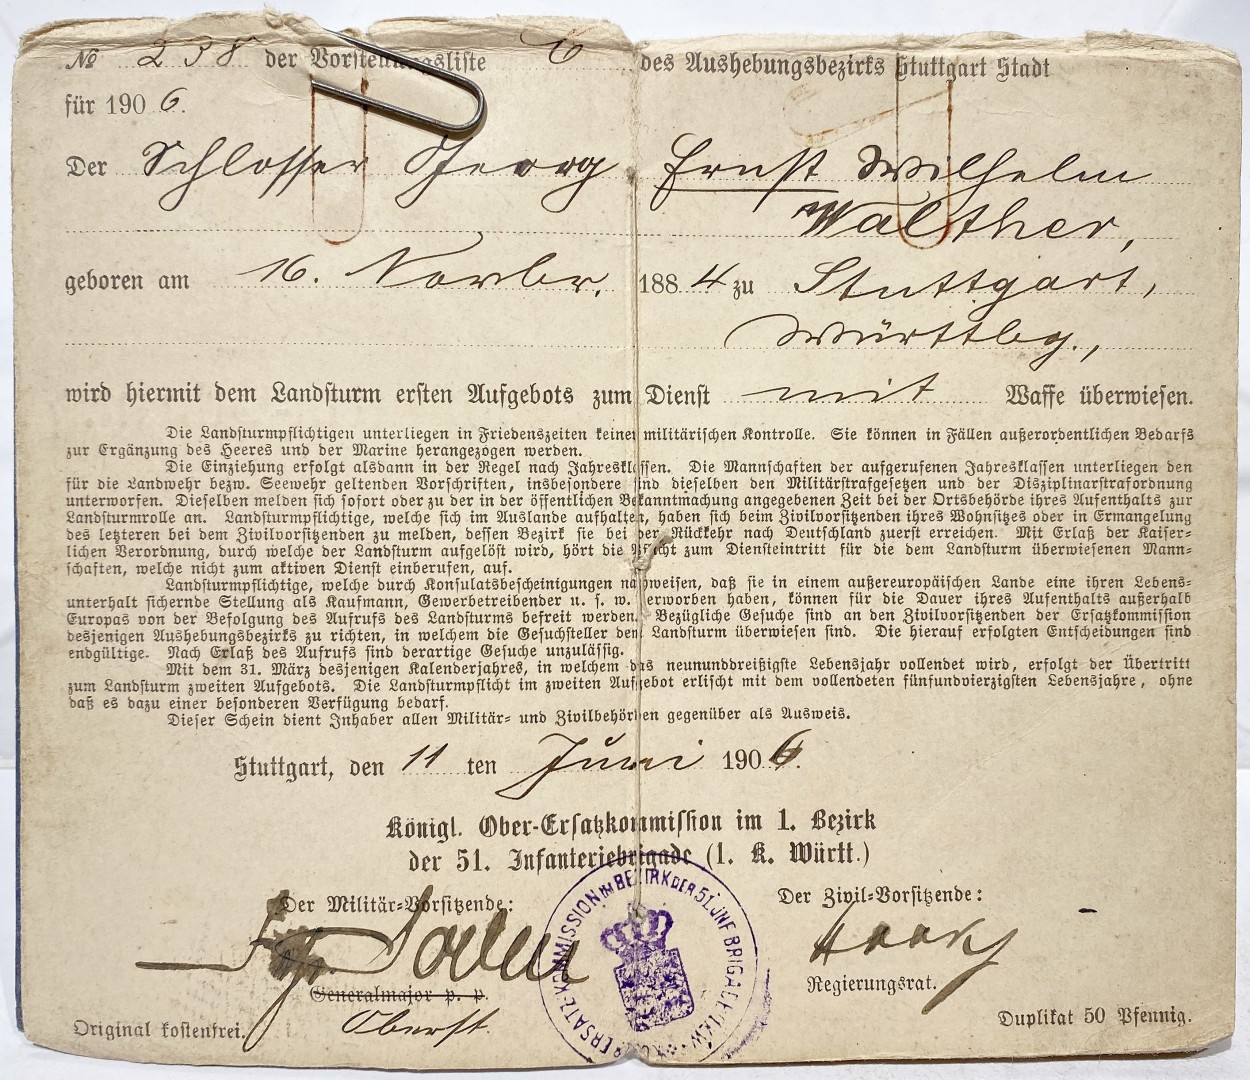 № 238 der Vorstellungsliste C des Aushebungsbezirks Stuttgart Stadt
für 1906.
Der Schlosser Georg Ernst Wilhelm
Walther,
geboren am 16. Novbr. 1884 zu Stuttgart,
Württbg.,
wird hiermit dem Landsturm ersten Aufgebots zum Dienst mit Waffe überwiesen.
Die Landsturmpflichtigen unterliegen in Friedenszeiten keiner militärischen Kontrolle. Sie können in Fällen außerordentlichen Bedarfs
zur Ergänzung des Heeres und der Marine herangezogen werden.
Die Einziehung erfolgt alsdann in der Regel nach Jahresklassen. Die Mannschaften der aufgerufenen Jahresklassen unterliegen den
für die Landwehr bezw. Seewehr geltenden Vorschriften, insbesondere sind dieselben den Militärstrafgesetzen und der Disziplinarstrafordnung
unterworfen. Dieselben melden sich sofort oder zu der in der öffentlichen Bekanntmachung angegebenen Zeit bei der Ortsbehörde ihres Aufenthalts zur
Landsturmrolle an. Landsturmpflichtige, welche sich im Auslande aufhalten, haben sich beim Zivilvorsitzenden ihres Wohnsitzes oder in Ermangelung
des letzteren bei dem Zivilvorsitzenden zu melden, dessen Bezirk sie bei der Rückkehr nach Deutschland zuerst erreichen. Mit Erlaß der Kaiser-
lichen Verordnung, durch welche der Landsturm aufgelöst wird, hört die Pflicht zum Diensteintritt für die dem Landsturm überwiesenen Mann-
schaften, welche nicht zum aktiven Dienst einberufen, auf.
Landsturmpflichtige, welche durch Konsulatsbescheinigungen nachweisen, daß sie in einem außereuropäischen Lande eine ihren Lebens-
unterhalt sichernde Stellung als Kaufmann, Gewerbetreibender u. s. w. erworben haben, können für die Dauer ihres Aufenthalts außerhalb
Europas von der Befolgung des Aufrufs des Landsturms befreit werden. Bezügliche Gesuche sind an den Zivilvorsitzenden der Ersatzkommission
desjenigen Aushebungsbezirks zu richten, in welchem die Gesuchsteller dem Landsturm überwiesen sind. Die hierauf erfolgten Entscheidungen sind
endgültige. Nach Erlaß des Aufrufs sind derartige Gesuche unzulässig.
Mit dem 31. März desjenigen Kalenderjahres, in welchem das neununddreißigste Lebensjahr vollendet wird, erfolgt der Übertritt
zum Landsturm zweiten Aufgebots. Die Landsturmpflicht im zweiten Aufgebot erlischt mit dem vollendeten fünfundvierzigsten Lebensjahre, ohne
daß es dazu einer besonderen Verfügung bedarf.
Dieser Schein dient Inhaber allen Militär- und Zivilbehörden gegenüber als Ausweis.
Stuttgart, den 11 ten Juni 1906.
Königl. Ober-Ersatzkommission im 1. Bezirk
der 51. Infanteriebrigade (1. K. Württ.)
Der Militär-Vorsitzende: Der Zivil-Vorsitzende:
Generalmajor p. p. Regierungsrat.
Oberst.
Original kostenfrei. Duplikat 50 Pfennig.
ERSATZKOMMISSION IM BEZIRK DER 51. INF. BRIGADE